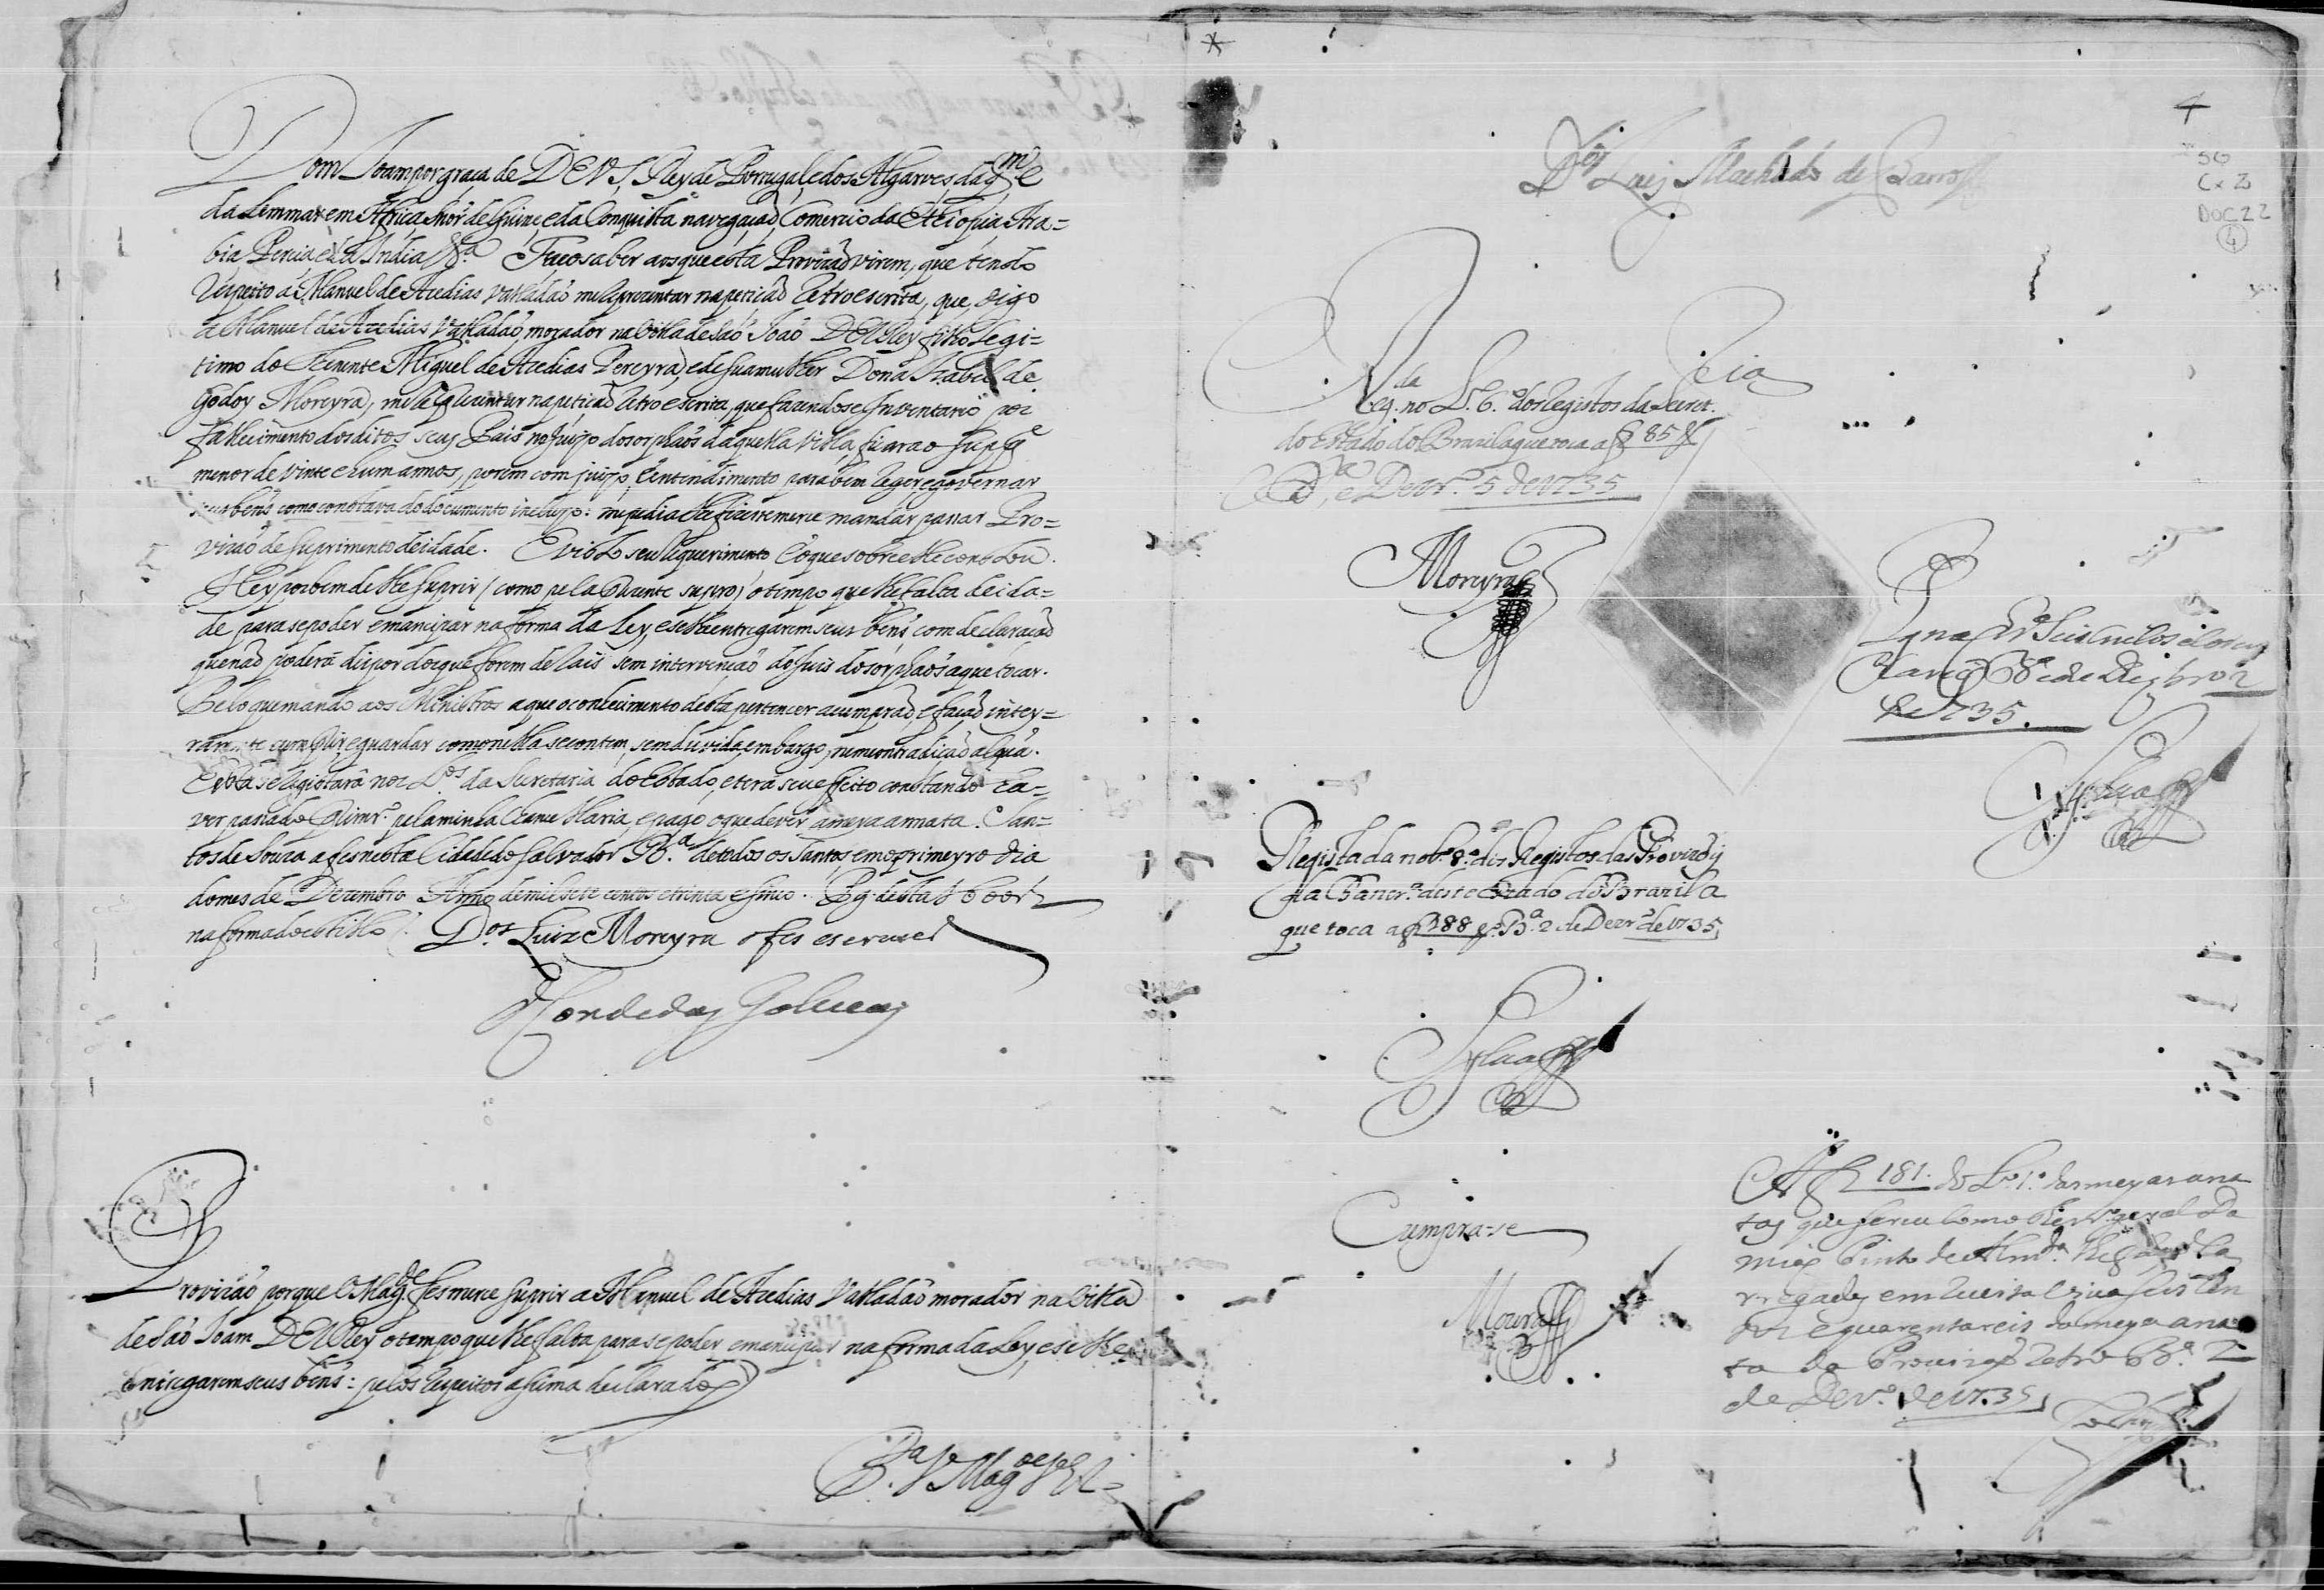 Dom Joam por graça de DEUS, Rey de Portugal, e dos Algarves daq.m e
da Lem mar em Africa Snor de Guine, e da Conquista navegaçaõ, Comercio da Ethiopia, Ara=
bia Percia e da India &.ª Faço saber aos que esta Provizaõ virem, que tendo
respeito a Manuel de Acedias Valladaõ me reprezentar na petiçaõ retro escrita, que, digo
a Manuel de Acedias Valladaõ, morador na Villa de Saõ Joaõ DElRey filho legi=
timo do Thenente Miguel de Acedias Pereyra, e de sua mulher Dona Izabel de
Godoy Moreyra, me reprezentar na petiçaõ retro escrita, que fazendose Inventario por
fallecimento dos ditos seus Pais no Juizo dos orphaõs daquella Villa, ficara o Supp.e
menor de vinte e hum annos, porem com juizo, e entendimento para bem reger e governar
seus bens como constava do documento incluzo: me pedia lhe fizesse merce mandar passar Pro=
vizaõ de suprimento de idade. E visto seu requerimento, e o que sobre elle constou.
Hey por bem de lhe suprir (como pela prezente supro) o tempo que lhe falta de ida=
de para se poder emancipar na forma da Ley, e se lhe entregarem seus bens com declaraçaõ
que naõ poderá dispor dos que forem de raiz sem intervençaõ do Juis dos orphaõs a que tocar.
Pelo que mando aos Ministros a que o conhecimento desta pertencer a cumpraõ, e façaõ intey=
ramente cumplir, e guardar como nella se contem, sem duvida, embargo, nem contradiçaõ alguã.
Esta se registará nos L.os da Secretaria do Estado, e terá seu effeito constando ha=
ver passado Prim.ro pela minha Chancellaria, e pago o que dever ameya annata. San=
tos de Souza a fes nesta Cidade do Salvador B.ª de todos os Santos, em o primeyro dia
do mes de Dezembro Anno de mil sete centos e trinta e sinco. Pg. desta
na forma do estillo. D.or Luiz Moreyra o fes escrever
Conde das Galveas
Provizaõ porque V. Mag.de fes merce suprir a Manuel de Acedias Valladaõ morador na Villa
de Saõ Joam DElRey o tempo que lhe falta para se poder emancipar na forma da Ley, e se lhe
entregarem seus bens: pelos respeitos assima declarados
P.a V. Mag.de
4
SG
Cx 3
DOC 22
4
D.or Luiz Machado de Barros
Reg.da no L.º 6.º dos registos da Secret.
do Estado do Brazil a que toca a f 85
B.ª e Dezr.º 5 de 1735
Moreyra
B.ª e de Dezbro 2
de 1735.
Sylva
Registada no L.º 8.º dos Registos das Provizoẽs
da Chancr.ª deste Estado do Brazil a
que toca a f 188 B.ª 2 de Dezr.º de 1735
Sylva
Cumpra-se
Moura
A f 181. do L.º 1.º das meyas ana
tas que serve
Pinto de Alm.da
rregados em
e quarenta reis da meya ana
ta da Provizaõ retro B.ª 2
de Dezr.º de 1735